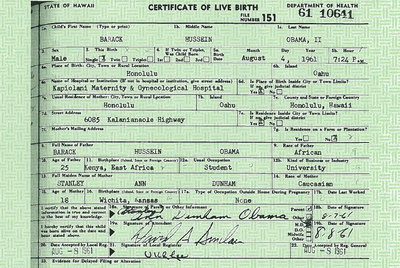 STATE OF HAWAII CERTIFICATE OF LIVE BIRTH DEPARTMENT OF HEALTH
FILE NUMBER 151 61 10641
1a. Child's First Name (Type or print) 1b. Middle Name 1c. Last Name
BARACK HUSSEIN OBAMA, II
2. Sex 3. This Birth 4. If Twin or Triplet, Was Child Born 5a. Birth Date Month Day Year 5b. Hour
Male Single Twin Triplet 1st 2nd 3rd August 4, 1961 7:24 P.M.
6a. Place of Birth: City, Town or Rural Location 6b. Island
Honolulu Oahu
6c. Name of Hospital or Institution (If not in hospital or institution, give street address) 6d. Is Place of Birth Inside City or Town Limits? If no, give judicial district
Kapiolani Maternity & Gynecological Hospital Yes No
7a. Usual Residence of Mother: City, Town or Rural Location 7b. Island 7c. County and State or Foreign Country
Honolulu Oahu Honolulu, Hawaii
7d. Street Address 7e. Is Residence Inside City or Town Limits? If no, give judicial district
6085 Kalanianaole Highway Yes No
7f. Mother's Mailing Address 7g. Is Residence on a Farm or Plantation?
Yes No
8. Full Name of Father 9. Race of Father
BARACK HUSSEIN OBAMA African
10. Age of Father 11. Birthplace (Island, State or Foreign Country) 12a. Usual Occupation 12b. Kind of Business or Industry
25 Kenya, East Africa Student University
13. Full Maiden Name of Mother 14. Race of Mother
STANLEY ANN DUNHAM Caucasian
15. Age of Mother 16. Birthplace (Island, State or Foreign Country) 17a. Type of Occupation Outside Home During Pregnancy 17b. Date Last Worked
18 Wichita, Kansas None
I certify that the above stated information is true and correct to the best of my knowledge. 18a. Signature of Parent or Other Informant 18b. Date of Signature
Dunham Obama 8-7-61
I hereby certify that this child was born alive on the date and hour stated above. 19a. Signature of Attendant M.D. D.O. Midwife Other 19b. Date of Signature
David A Sinclair 8-8-61
20. Date Accepted by Local Reg. 21. Signature of Local Registrar 22. Date Accepted by Reg. General
AUG -8 1961 AUG -8 1961
23. Evidence for Delayed Filing or Alteration